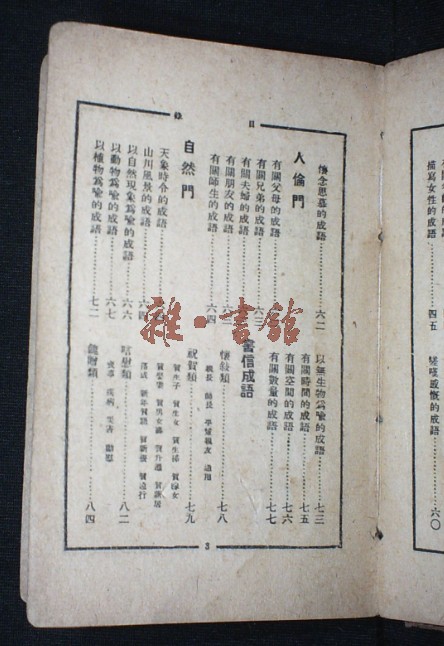 目 錄
懷念思慕的成語……………六二
人倫門
有關父母的成語
有關兄弟的成語……………六三
有關夫婦的成語
有關朋友的成語……………六三
有關師生的成語……………六四
自然門
天象時令的成語
山川風景的成語……………六四
以自然現象爲喻的成語……六六
以動物爲喻的成語…………六七
以植物爲喻的成語…………七二
以無生物爲喻的成語………七三
有關時間的成語……………七五
有關空間的成語……………七六
有關數量的成語……………七七
書信成語
懷敍類……………七八
親長 師長 學界親友 通用
祝賀類……………七九
賀生子 賀生女 賀生孫
賀新居
賀遠行
唁慰類……………八二
喪事 疾病 災害
餽贈類……………八四
3
雜·書館
描寫女性的成語……………四五
嗟嘆感慨的成語……………六〇